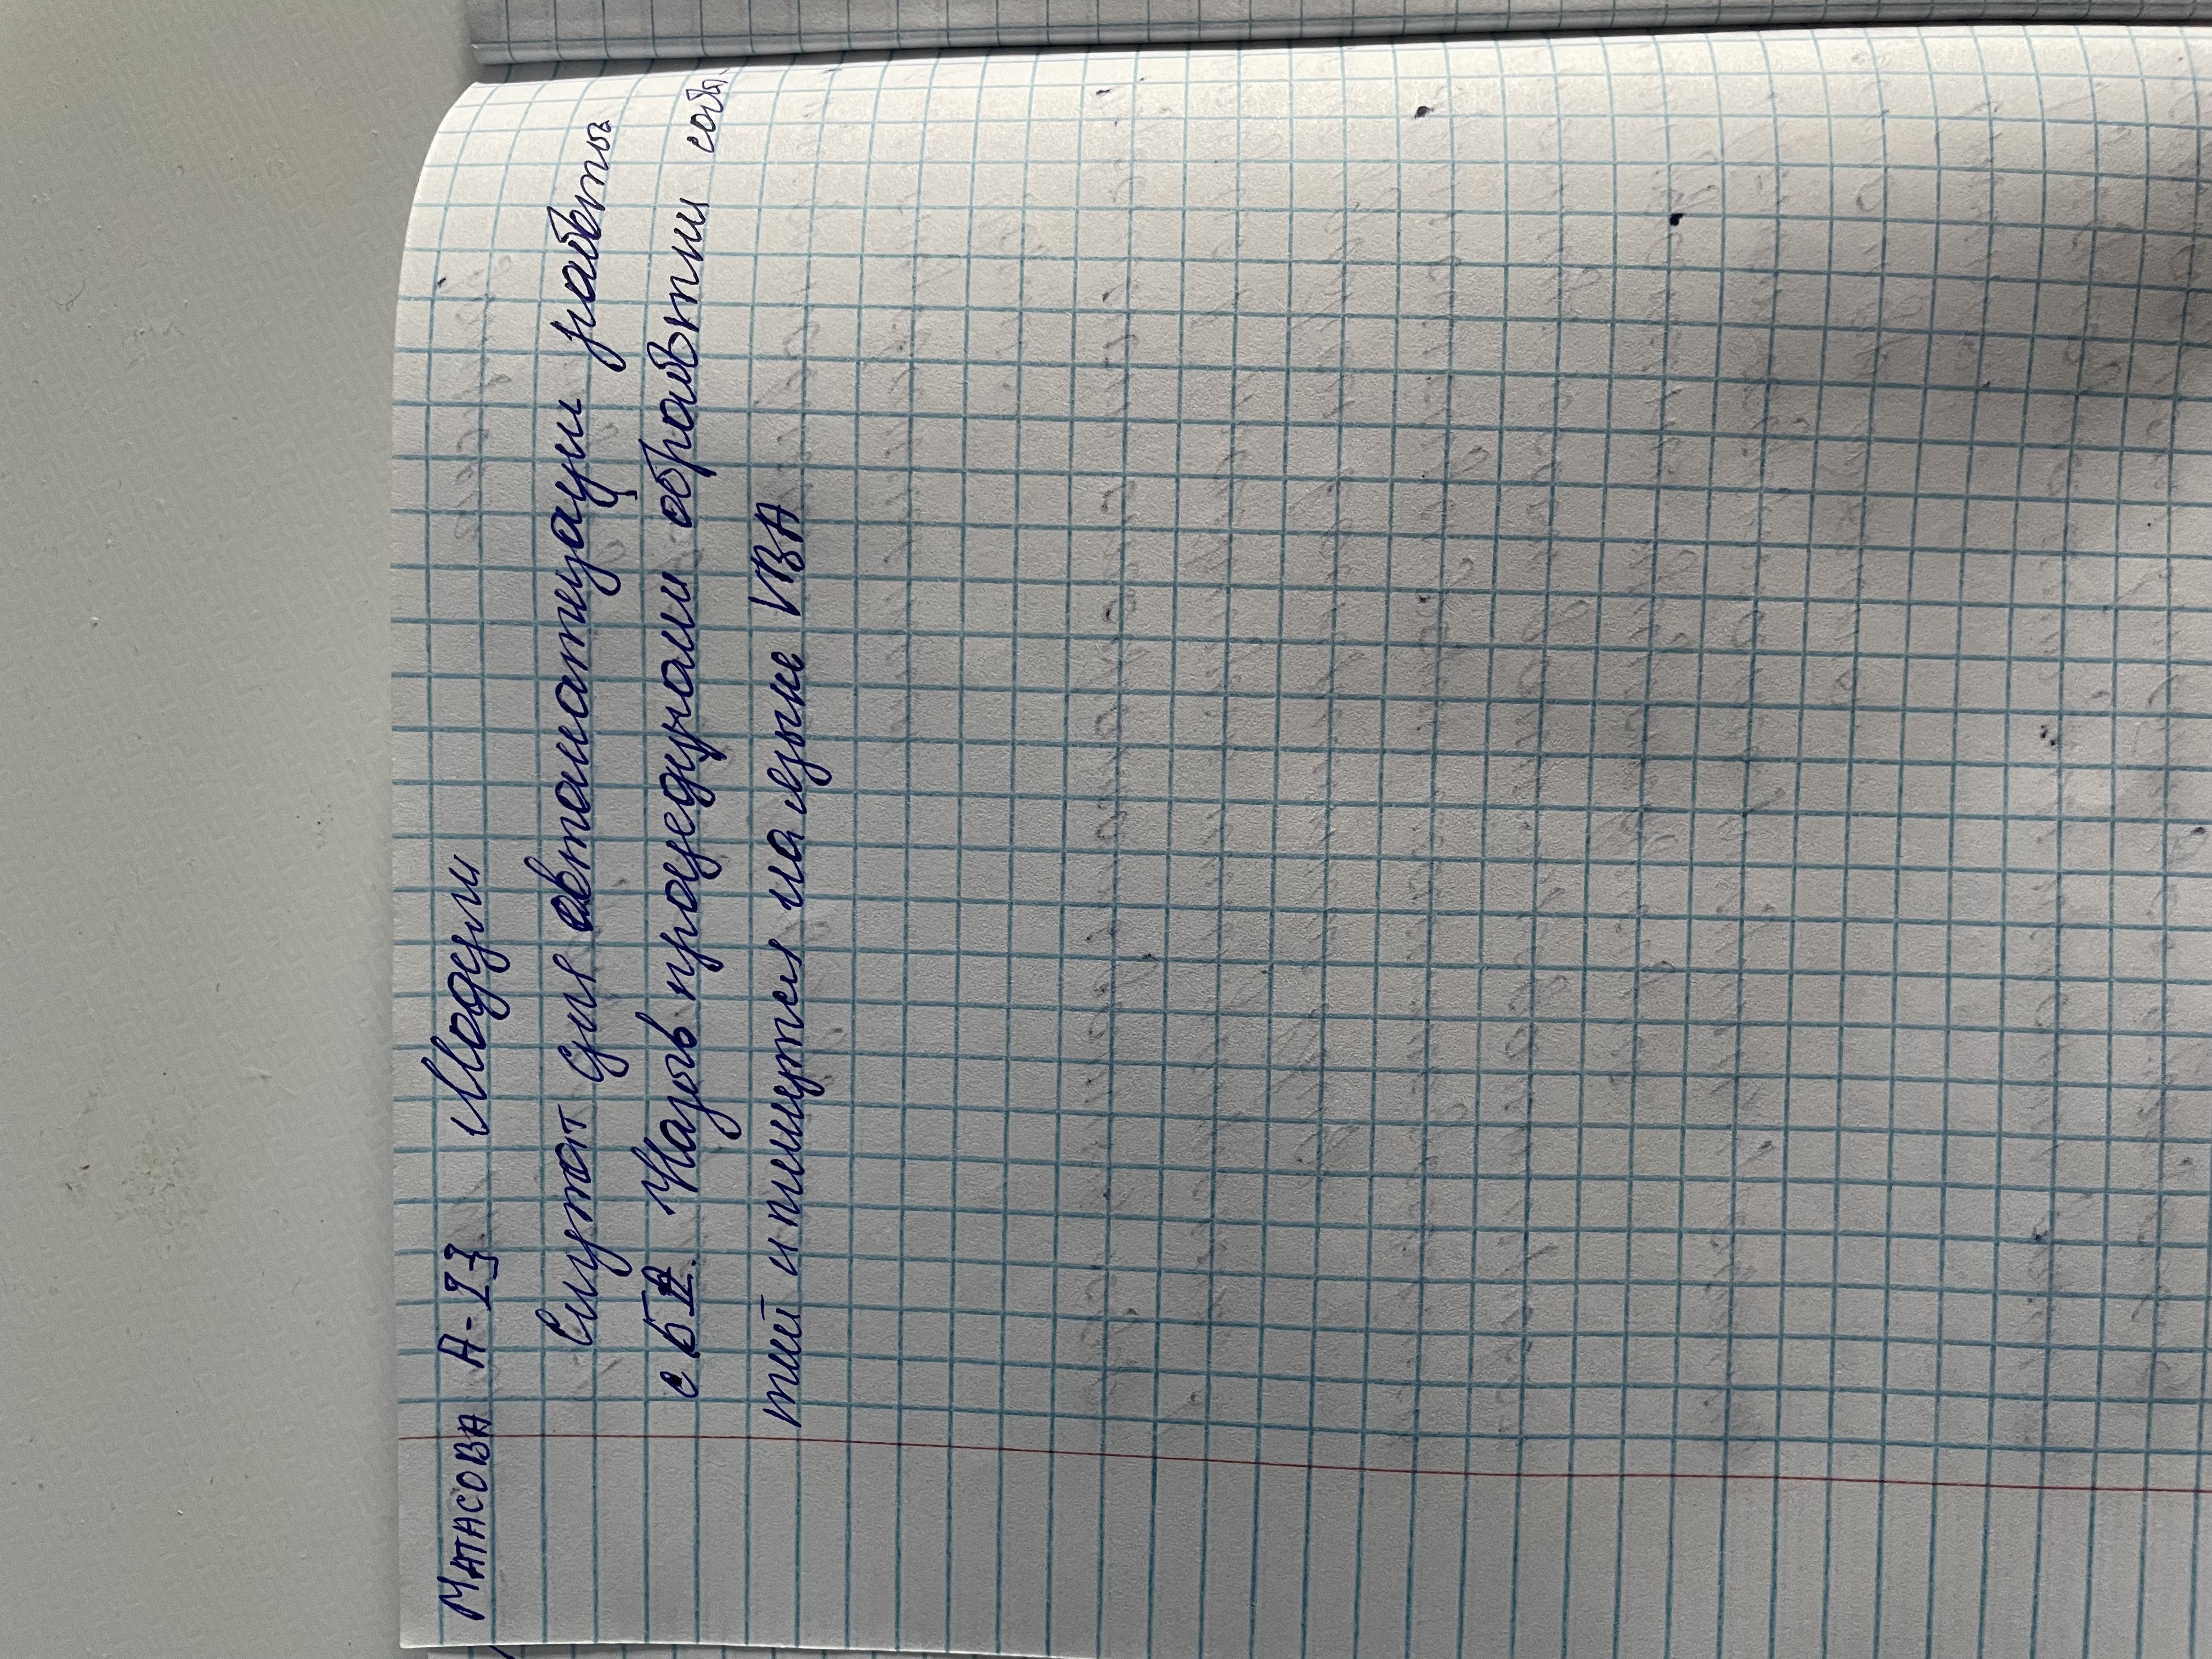 МАТАСОВА А-13 Модули
Служат для автоматизации работы
с БД. Назыв процедурами обработки собы
тий и пишутся на языке VBA